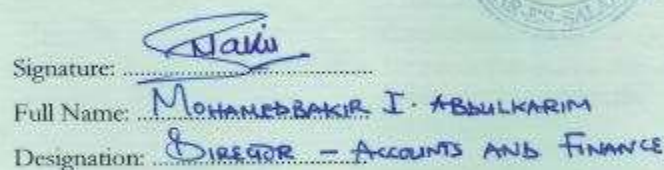 DAR-ES-SALAAM
Signature: ........................
Full Name: MOHAMEDBAKIR I. ABDULKARIM
Designation: DIRECTOR – ACCOUNTS AND FINANCE